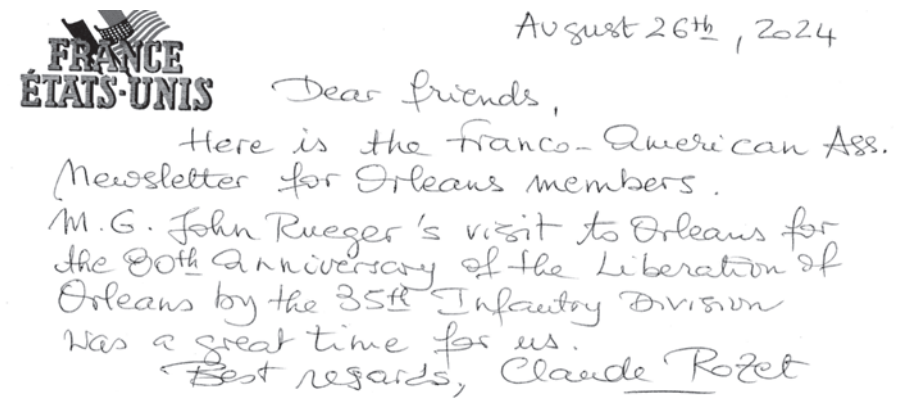 FRANCE
ÉTATS-UNIS
August 26th, 2024
Dear friends,
Here is the Franco-American Ass.
Newsletter for Orleans members.
M.G. John Rueger's visit to Orleans for
the 80th Anniversary of the Liberation of
Orleans by the 35th Infantry Division
was a great time for us.
Best regards, Claude Rozet